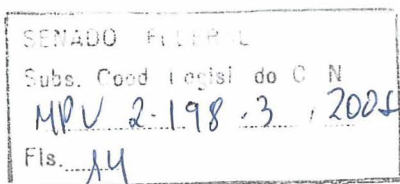 SENADO FEDERAL
Subs. Coord. Legisl. do C. N.
MPV 2.198.3, 2001
Fls. 14